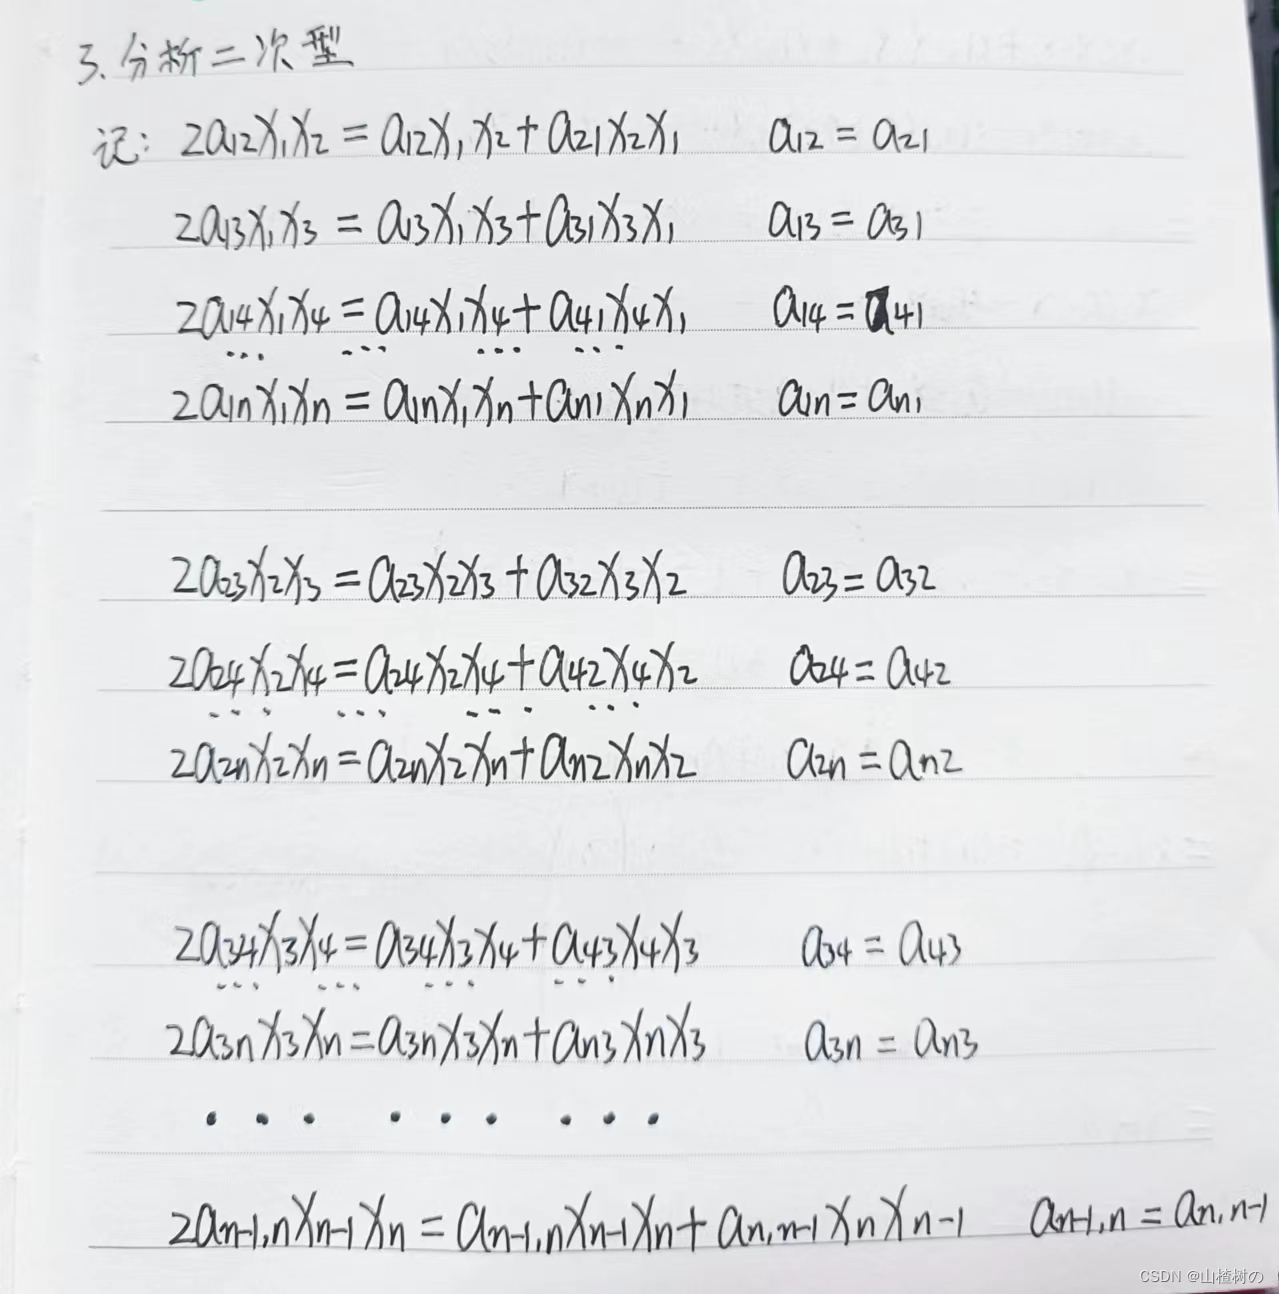 3.分析二次型
记: 2a₁₂x₁x₂ = a₁₂x₁x₂ + a₂₁x₂x₁ a₁₂ = a₂₁
2a₁₃x₁x₃ = a₁₃x₁x₃ + a₃₁x₃x₁ a₁₃ = a₃₁
2a₁₄x₁x₄ = a₁₄x₁x₄ + a₄₁x₄x₁ a₁₄ = a₄₁
... ... ... ...
2a₁ₙx₁xₙ = a₁ₙx₁xₙ + aₙ₁xₙx₁ a₁ₙ = aₙ₁
2a₂₃x₂x₃ = a₂₃x₂x₃ + a₃₂x₃x₂ a₂₃ = a₃₂
2a₂₄x₂x₄ = a₂₄x₂x₄ + a₄₂x₄x₂ a₂₄ = a₄₂
... ... ... ...
2a₂ₙx₂xₙ = a₂ₙx₂xₙ + aₙ₂xₙx₂ a₂ₙ = aₙ₂
2a₃₄x₃x₄ = a₃₄x₃x₄ + a₄₃x₄x₃ a₃₄ = a₄₃
... ... ... ...
2a₃ₙx₃xₙ = a₃ₙx₃xₙ + aₙ₃xₙx₃ a₃ₙ = aₙ₃
... ... ...
2aₙ₋₁,ₙxₙ₋₁xₙ = aₙ₋₁,ₙxₙ₋₁xₙ + aₙ,ₙ₋₁xₙxₙ₋₁ aₙ₋₁,ₙ = aₙ,ₙ₋₁
CSDN @山楂树の